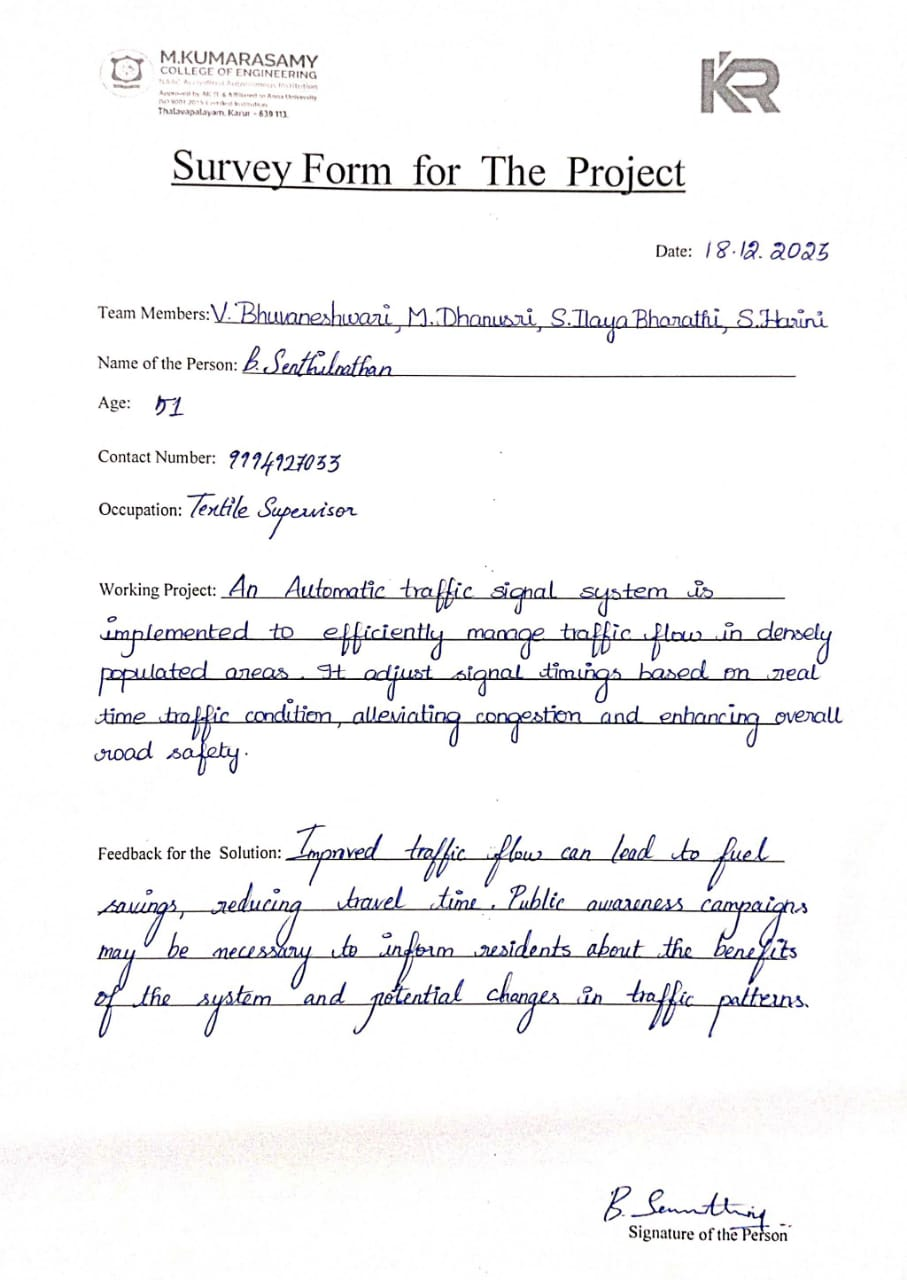 M.KUMARASAMY
COLLEGE OF ENGINEERING
NAAC Accredited Autonomous Institution
Approved by AICTE & Affiliated to Anna University
ISO 9001:2015 Certified Institution
Thalavapalayam, Karur - 639 113.
KR
Survey Form for The Project
Date: 18.12.2023
Team Members: V. Bhuvaneshwari, M. Dhanusri, S. Ilaya Bharathi, S. Harini
Name of the Person: B. Senthilnathan
Age: 51
Contact Number: 9994927033
Occupation: Textile Supervisor
Working Project: An Automatic traffic signal system is
implemented to efficiently manage traffic flow in densely
populated areas. It adjust signal timings based on real
time traffic condition, alleviating congestion and enhancing overall
road safety.
Feedback for the Solution: Improved traffic flow can lead to fuel
savings, reducing travel time. Public awareness campaigns
may be necessary to inform residents about the benefits
of the system and potential changes in traffic patterns.
B.
Signature of the Person